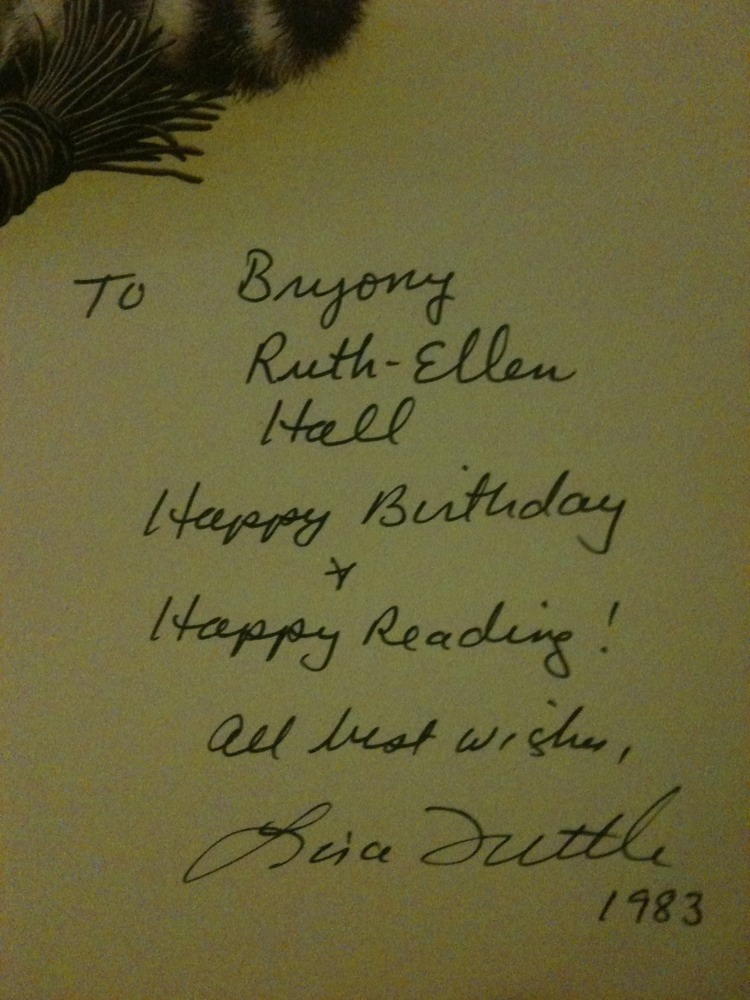 To Bryony
Ruth-Ellen
Hall
Happy Birthday
&
Happy Reading!
All best wishes,
Lisa Tuttle
1983